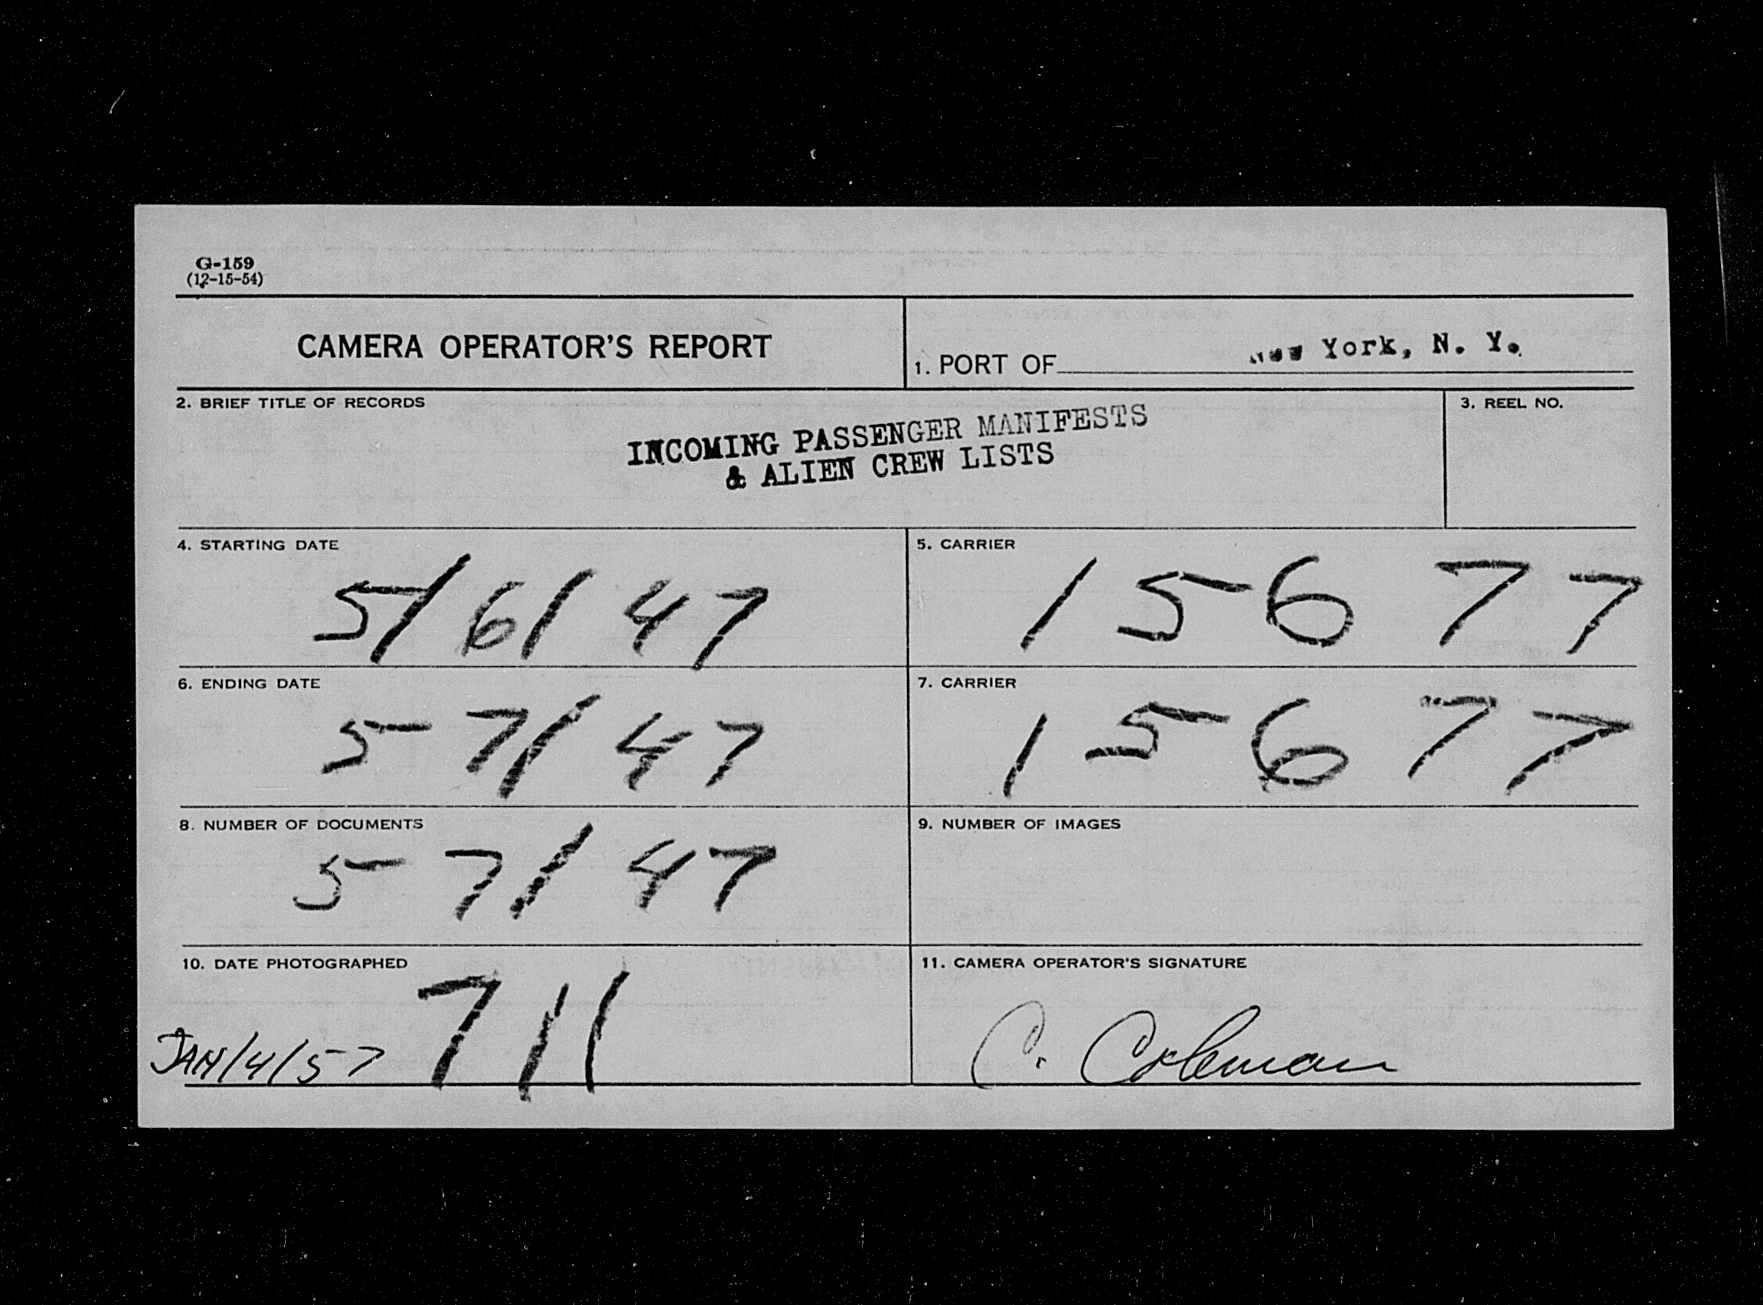 G-159
(12-15-54)
CAMERA OPERATOR'S REPORT
1. PORT OF New York, N. Y.
2. BRIEF TITLE OF RECORDS
INCOMING PASSENGER MANIFESTS
& ALIEN CREW LISTS
3. REEL NO.
4. STARTING DATE
5/6/47
5. CARRIER
15677
6. ENDING DATE
5 7/47
7. CARRIER
15677
8. NUMBER OF DOCUMENTS
5 7/47
9. NUMBER OF IMAGES
10. DATE PHOTOGRAPHED
JAN/4/57 711
11. CAMERA OPERATOR'S SIGNATURE
C. Coleman